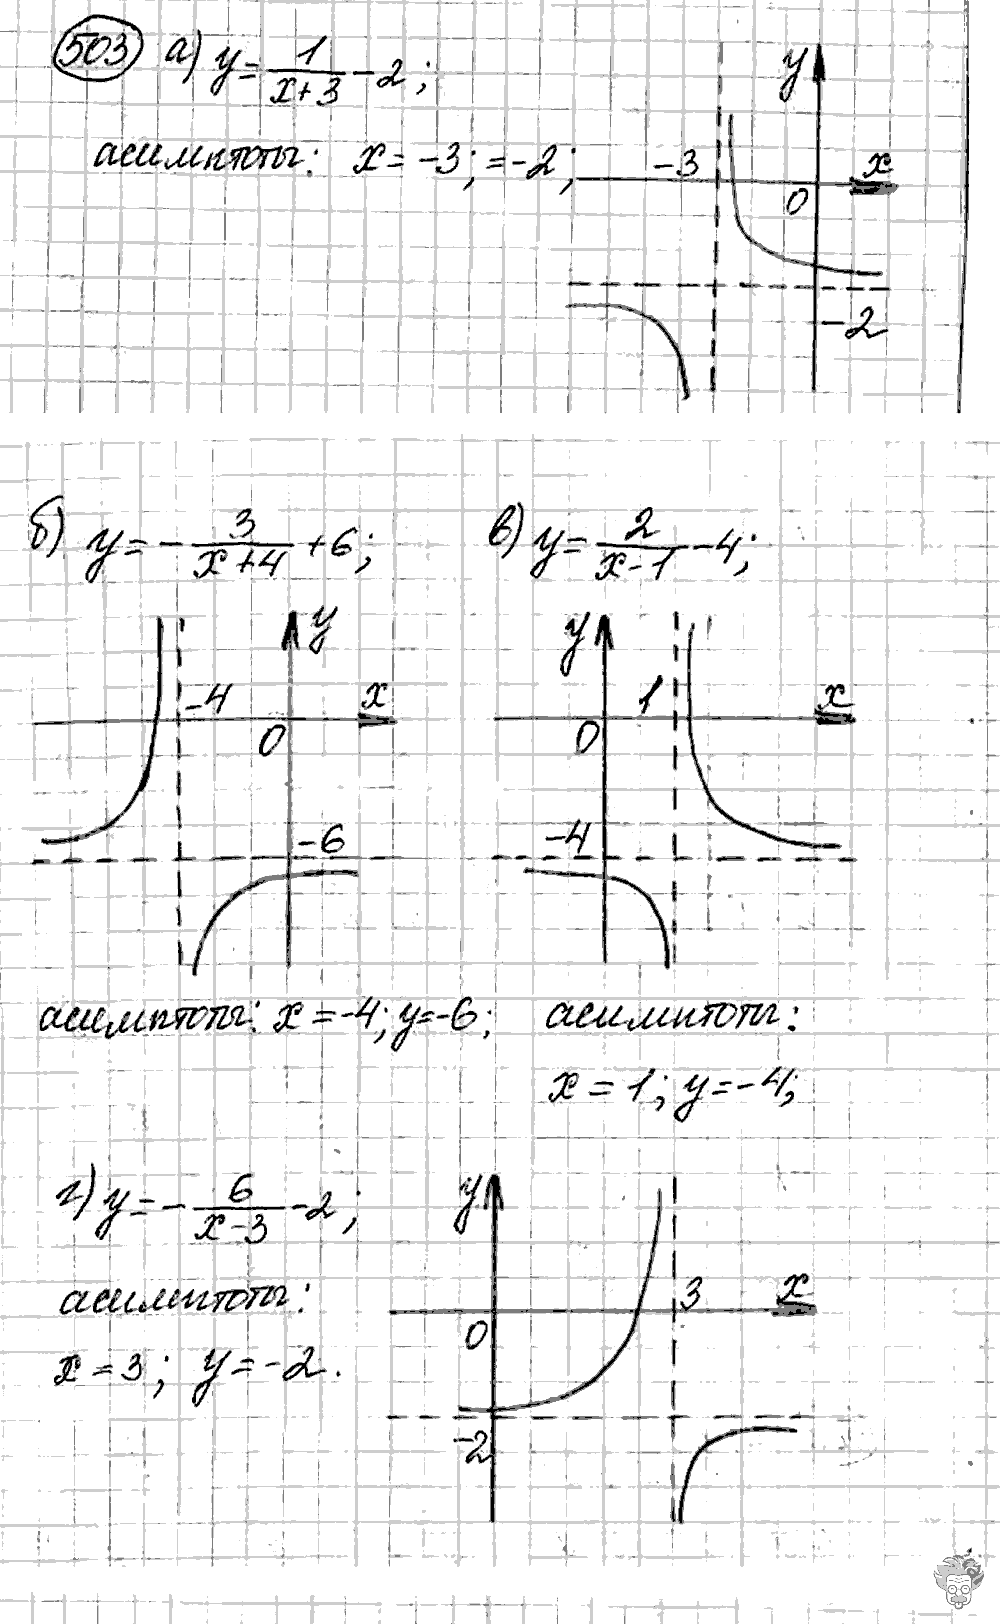 503 а) y = 1/(x+3) - 2;
y
асимптоты: x = -3; = -2; -3 x
0
-2
б) y = - 3/(x+4) + 6; в) y = 2/(x-1) - 4;
y y
-4 x 1 x
0 0
-6 -4
асимптоты: x = -4; y = -6; асимптоты:
x = 1; y = -4;
г) y = - 6/(x-3) - 2; y
асимптоты: 3 x
0
x = 3; y = -2.
-2